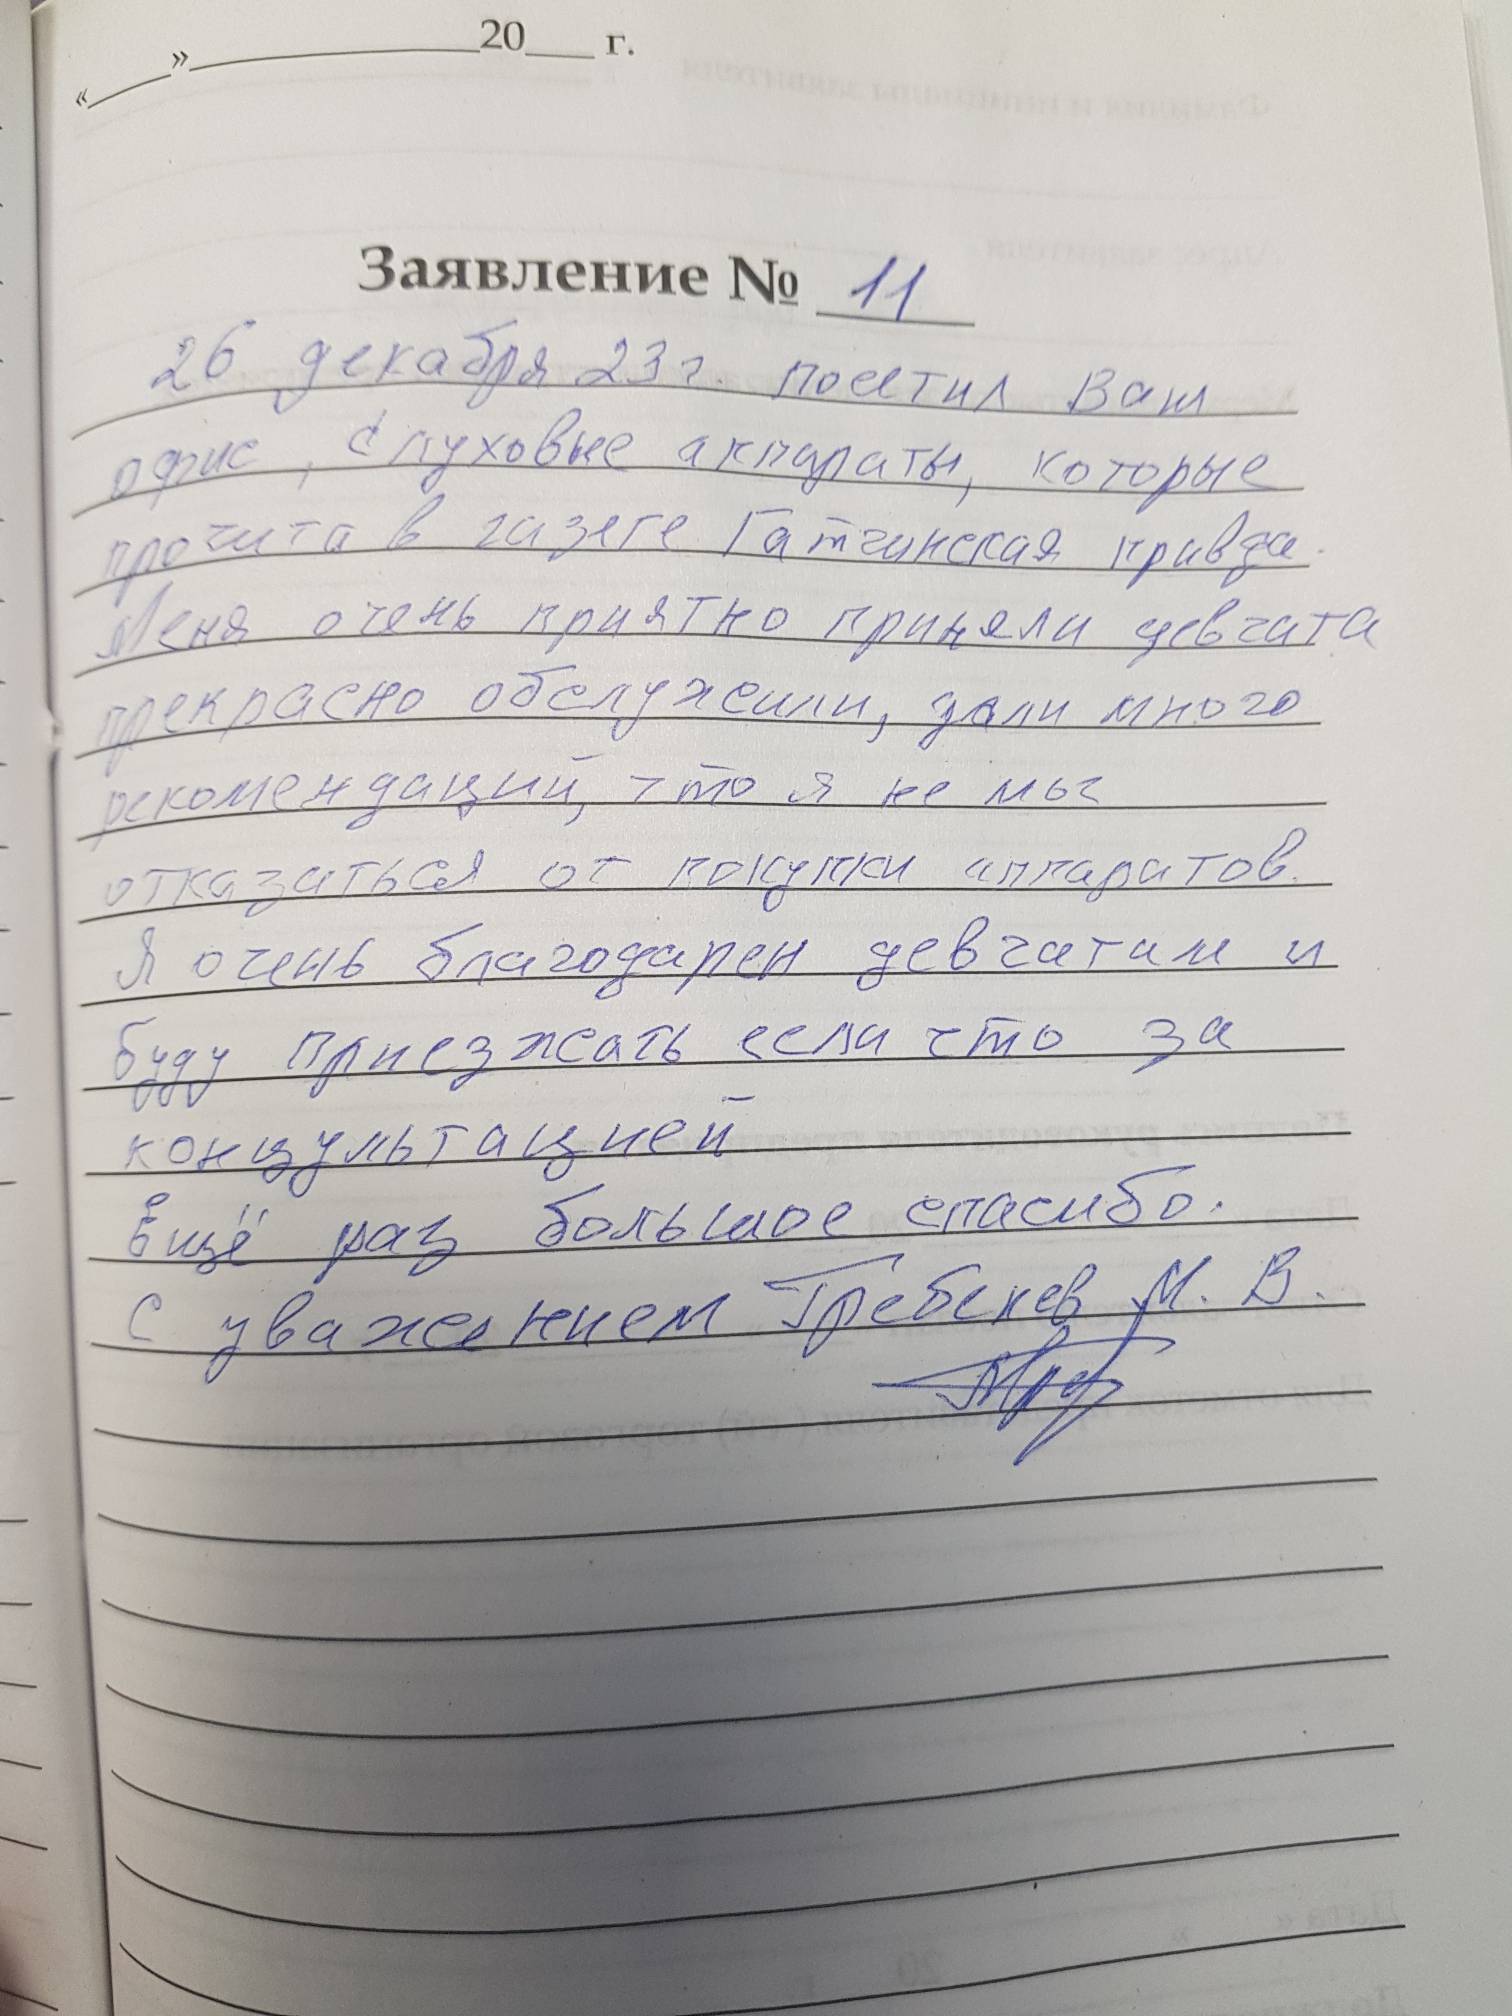 «____»____________20___ г.
Заявление № 11
26 декабря 23 г. посетил Ваш
офис, Слуховые аппараты, которые
прочита в газете Гатчинская правда.
Меня очень приятно приняли девчата
прекрасно обслужили, дали много
рекомендаций, что я не мог
отказаться от покупки аппаратов.
Я очень благодарен девчатам и
буду приезжать если что за
концультацией
Ещё раз большое спасибо.
С уважением М. В.